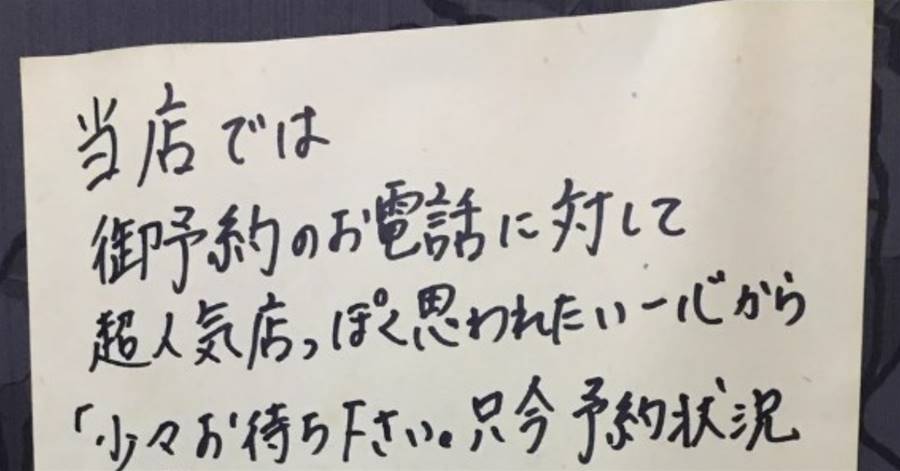 当店では
御予約のお電話に対して
超人気店っぽく思われたい一心から
「少々お待ち下さい。只今予約状況